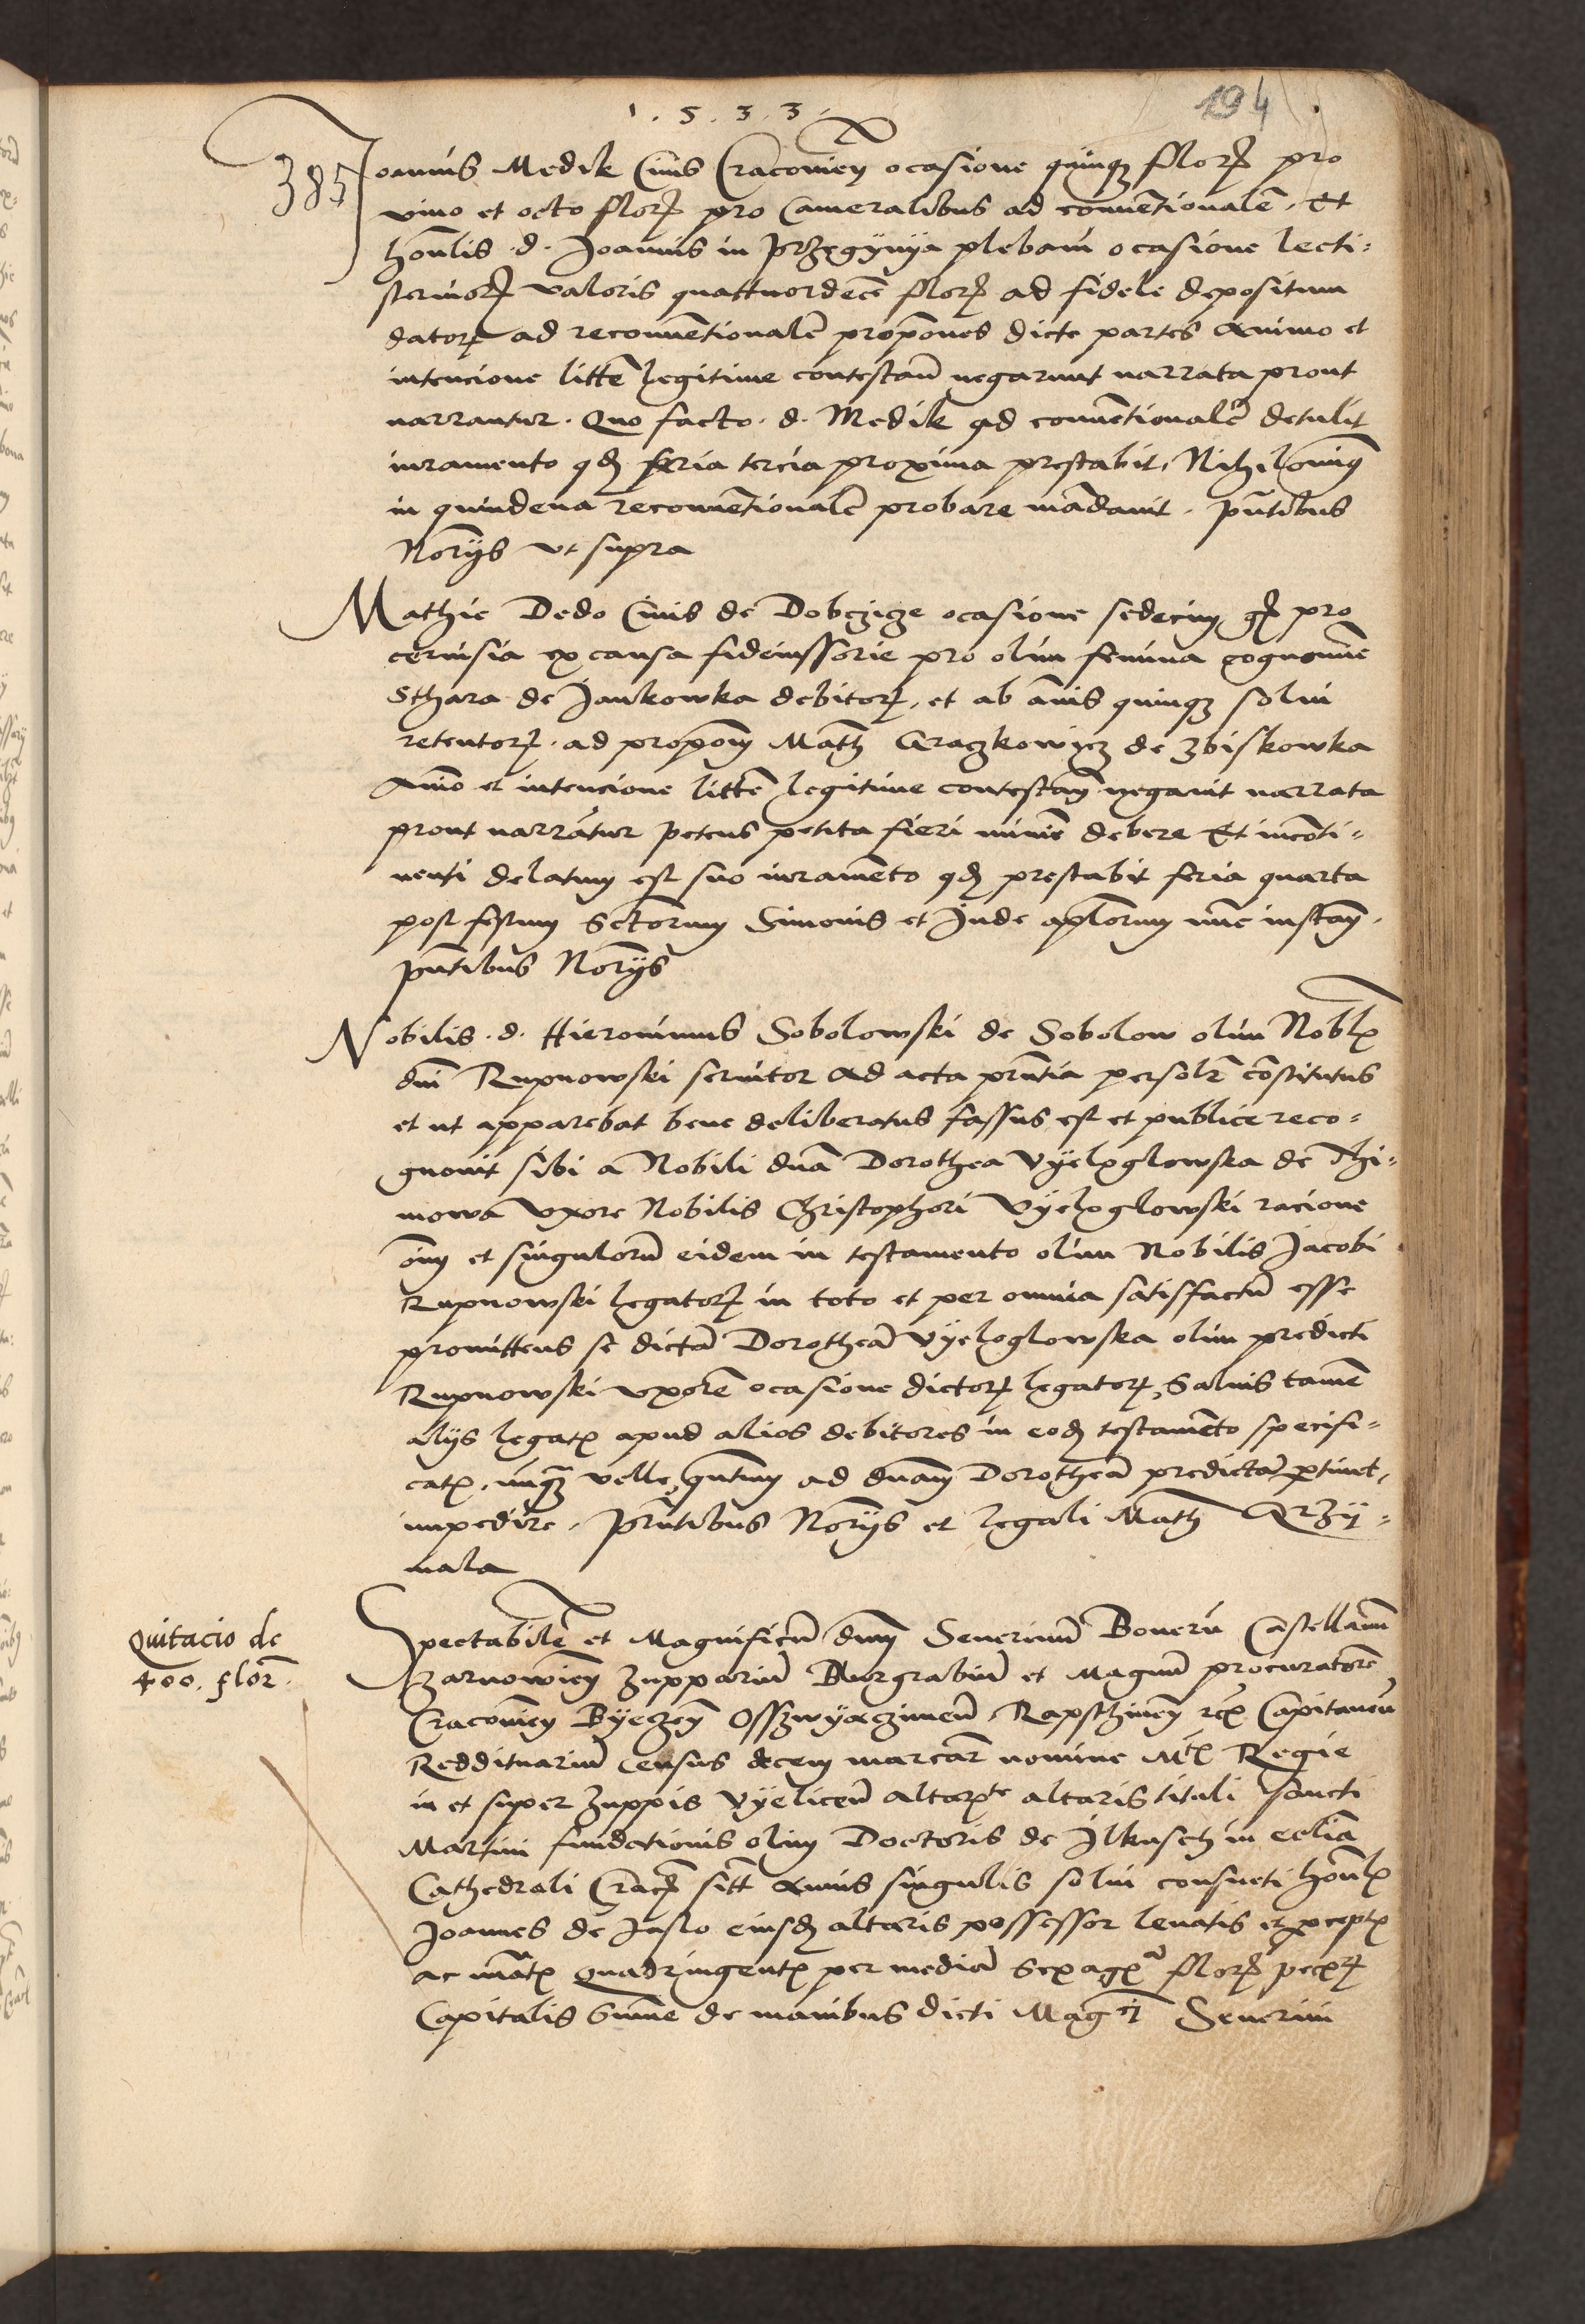 1.5.3.3.
194
385
Joannis Medik Civis Cracovien ocasione quinqz florz pro
vino et octo florz pro Cameralibus ad conventionalē. Et
honlis .d. Joannis in Przeginya plebani ocasione lecti=
sterniorz valoris quattuordecē florz ad fidele depositum
datorz ad reconventionalē propōnes dicte partes Animo et
intencione littē legitime contestan̄ negarunt narrata prout
narrantur. Quo facto .d. Medik ad conventionalē detulit
iuramento qd feria tercia proxima prestabit. Nihilominq
in quindena reconventionalē probare mādavit. pn̄tibus
Norijs ut supra
Mathie Dedo Civis de Dobczicze ocasione sedecim grz pro
cervisia ex causa fideiussorie pro olim femina cognomīe
Sthara de Jankowka debitorz, et ab an̄is quinqz solvi
retentorz. ad propōnem Math Graczkowicz de Zbiskowka
Animo et intencione littē legitime contestan̄ negavit narrata
prout narrātur petens petita fieri minīe debere Et incōti=
nenti delatum est suo iuramēto qd prestabit feria quarta
post festum Sctorum Simonis et Jude aplorum nūc instan̄.
pn̄tibus Norijs
Nobilis .d. Hieronimus Sobolowski de Sobolow olim Noblx
dn̄i Rupnowski servitor ad acta pn̄tia personlr constitutus
et ut apparebat bene deliberatus fassus est et publice reco=
gnovit sibi a Nobili dn̄a Dorothea Vyeloglowska de Thi=
mowa uxore Nobilis Christophori Vyeloglowski racione
om̄ et singulorū eidem in testamento olim Nobilis Jacobi
Rupnowski legatorz in toto et per omnia satisfactū esse
promittens se dictā Dorotheā Vyeloglowska olim predicti
Rupnowski uxorē ocasione dictorz legatorz, Salvis tamē
alijs legatx apud alios debitores in eodz testamēto specifi=
catx, nunqz velle, quntum ad dn̄am Dorotheā predictā ptinet,
impedire. pn̄tibus Norijs et legali Math Grzy=
mala
Quitacio de
400. flor̄.
Spectabilē et Magnificū dn̄m Severinū Bonerū Castellanū
Zarnowien̄ Zupparium Burgrabiū et Magnū procuratorē
Cracovien̄ Byeczen̄ Osszwyaczimen̄, Rapschinen̄ rcx Capitaneū
Reddituarium Census decem marcar̄ nomine Mtx Regie
in et super Zuppis Vyelicen̄ altarxte altaris tituli sancti
Martini fundationis olim Doctoris de Ilkusch in ecclīa
Cathedrali Cracz sitt Annis singulis solvi consueti honlx
Joannes de Jaslo eiusdz altaris possessor levatis et pceptx
ac nūatx Quadringentx per mediā Sexagxā florz pecxrz
Capitalis Sum̄e de manibus dicti Magci Severini